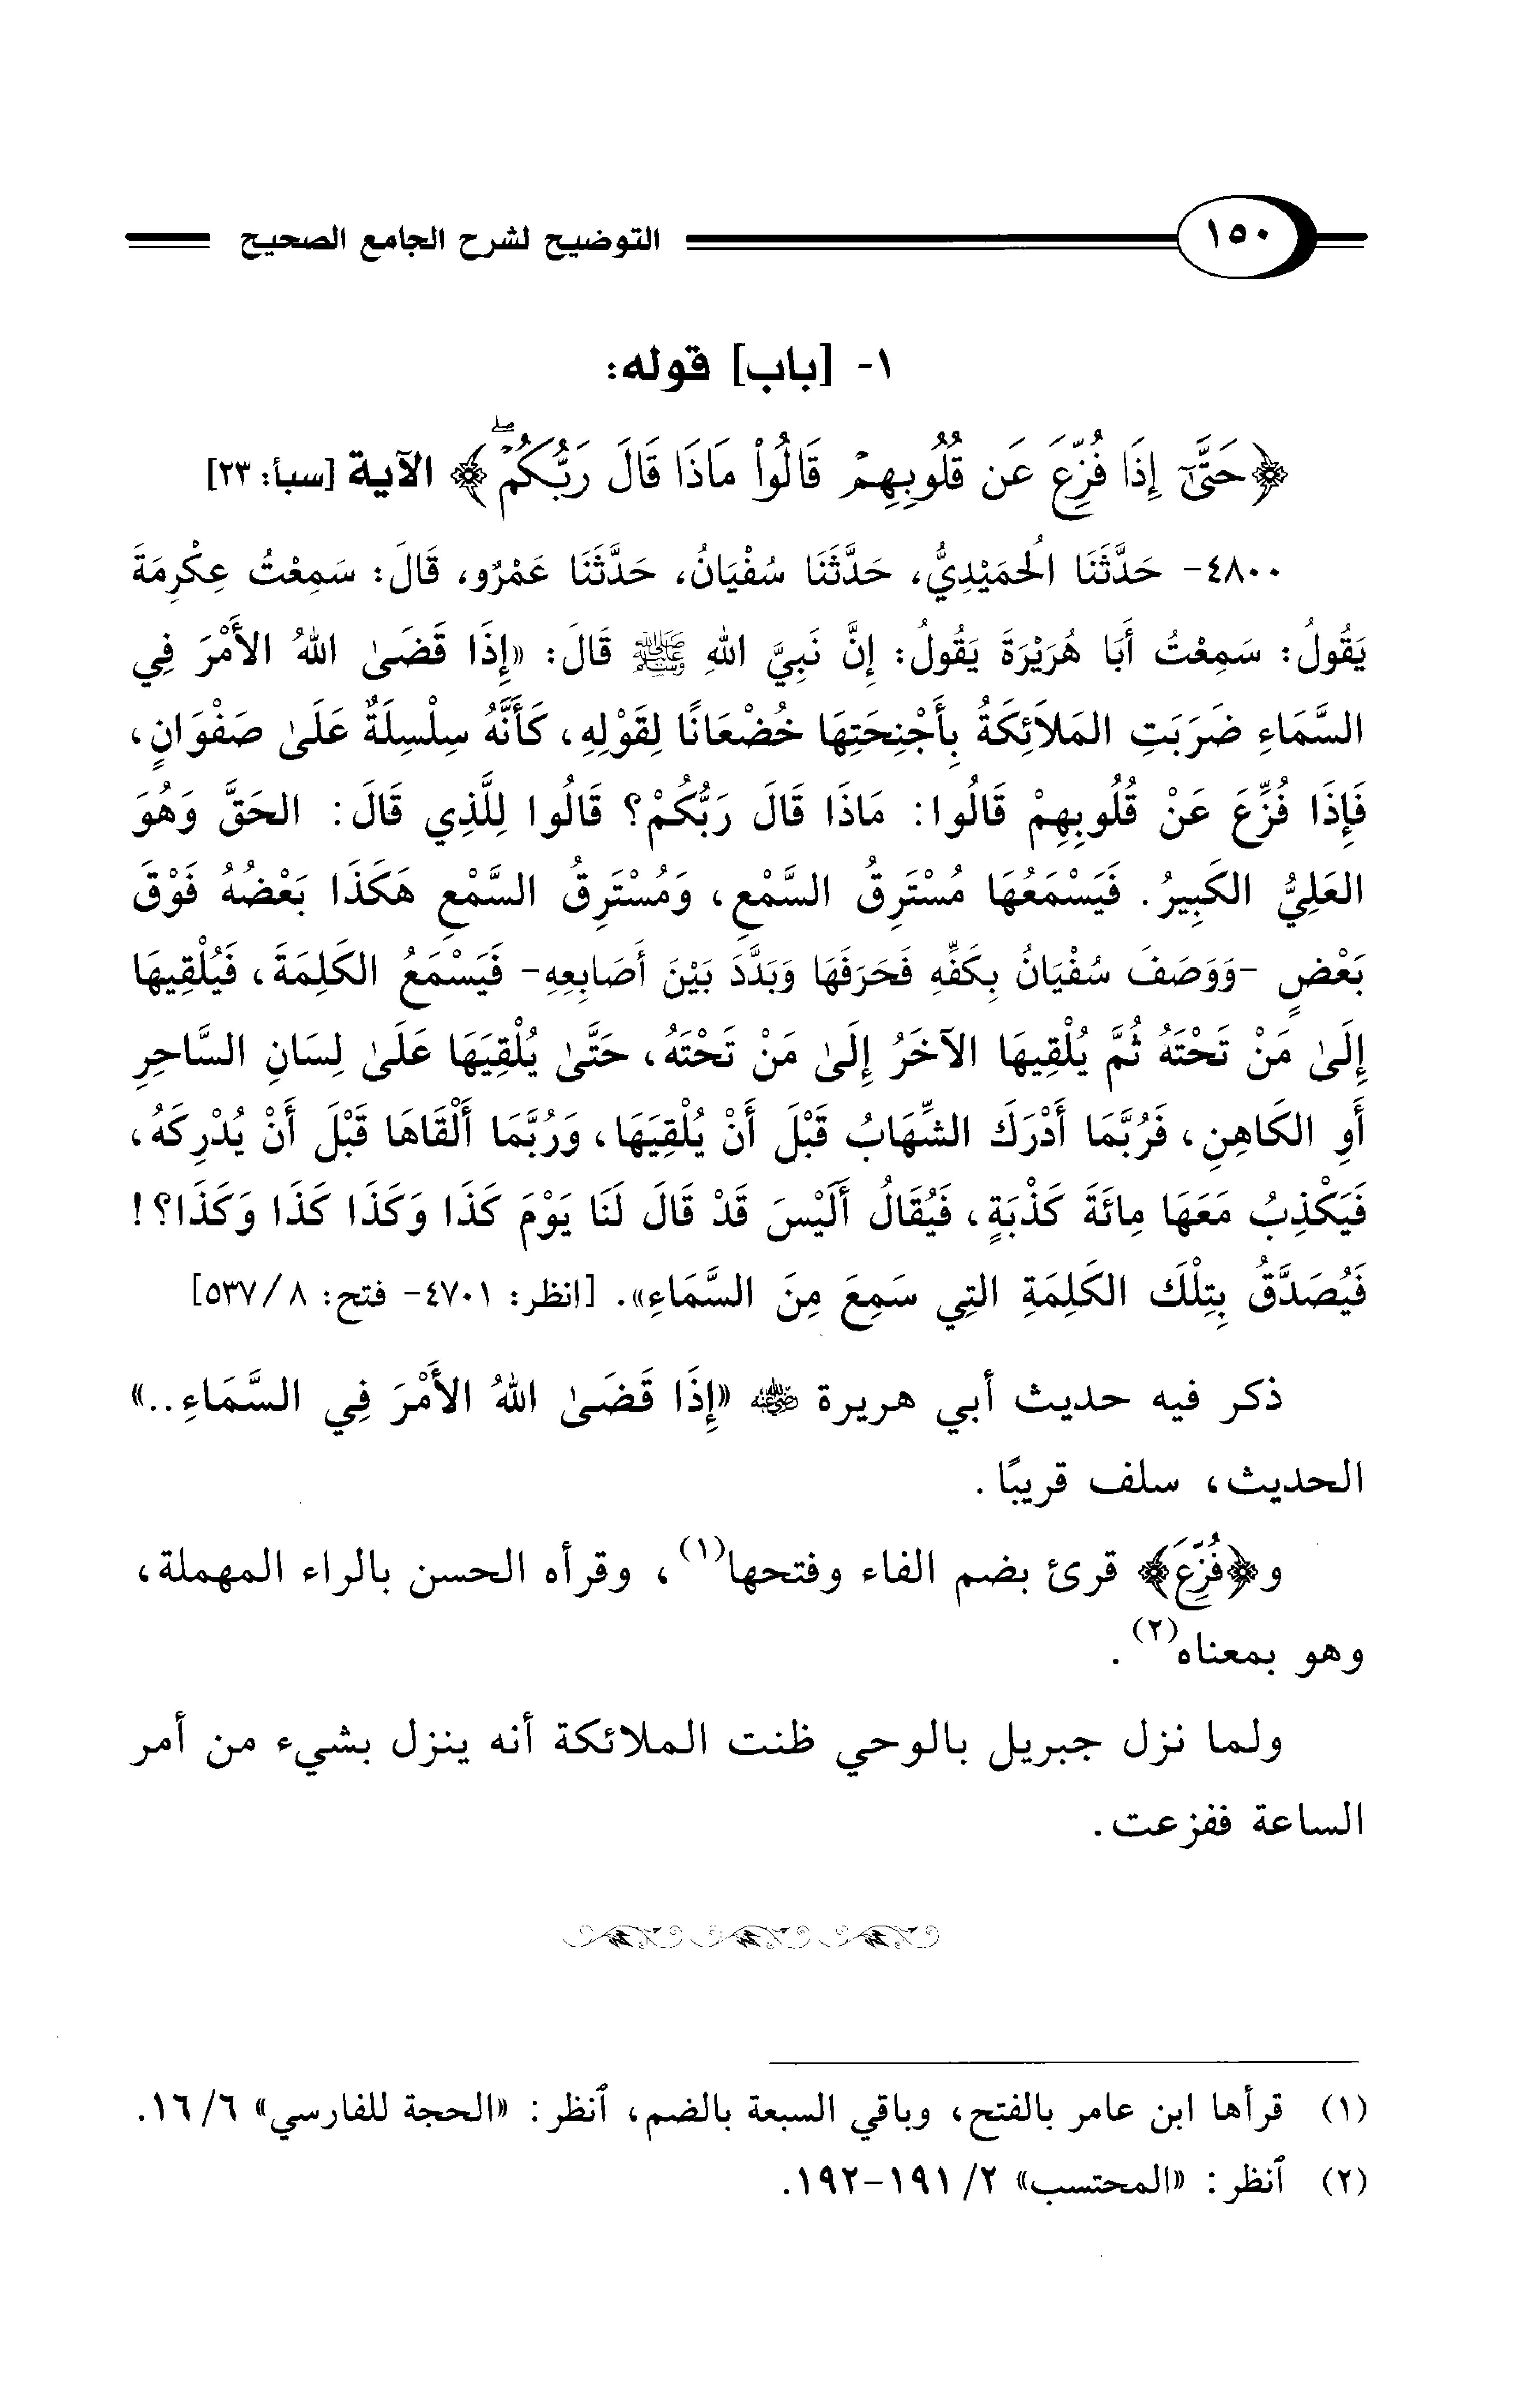 ١٥٠
التوضيح لشرح الجامع الصحيح
١- [باب] قوله:
﴿حَتَّىٰٓ إِذَا فُزِّعَ عَن قُلُوبِهِمْ قَالُوا۟ مَاذَا قَالَ رَبُّكُمْ ۖ﴾ الآية [سبأ: ٢٣]
٤٨٠٠- حَدَّثَنَا الُحمَيْدِيُّ، حَدَّثَنَا سُفْيَانُ، حَدَّثَنَا عَمْرٌو، قَالَ: سَمِعْتُ عِكْرِمَةَ
يَقُولُ: سَمِعْتُ أَبَا هُرَيْرَةَ يَقُولُ: إِنَّ نَبِيَّ اللهِ ﷺ قَالَ: «إِذَا قَضَىٰ اللهُ الأَمْرَ فِي
السَّمَاءِ ضَرَبَتِ المَلاَئِكَةُ بِأَجْنِحَتِهَا خُضْعَانًا لِقَوْلِهِ، كَأَنَّهُ سِلْسِلَةٌ عَلَىٰ صَفْوَانٍ،
فَإِذَا فُزِّعَ عَنْ قُلُوبِهِمْ قَالُوا: مَاذَا قَالَ رَبُّكُمْ؟ قَالُوا لِلَّذِي قَالَ: الحَقَّ وَهُوَ
العَلِيُّ الكَبِيرُ. فَيَسْمَعُهَا مُسْتَرِقُ السَّمْعِ، وَمُسْتَرِقُ السَّمْعِ هَكَذَا بَعْضُهُ فَوْقَ
بَعْضٍ -وَوَصَفَ سُفْيَانُ بِكَفِّهِ فَحَرَفَهَا وَبَدَّدَ بَيْنَ أَصَابِعِهِ- فَيَسْمَعُ الكَلِمَةَ، فَيُلْقِيهَا
إِلَىٰ مَنْ تَحْتَهُ ثُمَّ يُلْقِيهَا الآخَرُ إِلَىٰ مَنْ تَحْتَهُ، حَتَّىٰ يُلْقِيَهَا عَلَىٰ لِسَانِ السَّاحِرِ
أَوِ الكَاهِنِ، فَرُبَّمَا أَدْرَكَ الشِّهَابُ قَبْلَ أَنْ يُلْقِيَهَا، وَرُبَّمَا أَلْقَاهَا قَبْلَ أَنْ يُدْرِكَهُ،
فَيَكْذِبُ مَعَهَا مِائَةَ كَذْبَةٍ، فَيُقَالُ أَلَيْسَ قَدْ قَالَ لَنَا يَوْمَ كَذَا وَكَذَا كَذَا وَكَذَا؟!
فَيُصَدَّقُ بِتِلْكَ الكَلِمَةِ التِي سَمِعَ مِنَ السَّمَاءِ». [انظر: ٤٧٠١- فتح: ٨/ ٥٣٧]
ذكر فيه حديث أبي هريرة ﵁ «إِذَا قَضَىٰ اللهُ الأَمْرَ فِي السَّمَاءِ..»
الحديث، سلف قريبًا.
و﴿فُزِّعَ﴾ قرئ بضم الفاء وفتحها(١)، وقرأه الحسن بالراء المهملة،
وهو بمعناه(٢).
ولما نزل جبريل بالوحي ظنت الملائكة أنه ينزل بشيء من أمر
الساعة ففزعت.
(١) قرأها ابن عامر بالفتح، وباقي السبعة بالضم، ٱنظر: «الحجة للفارسي» ٦/ ١٦.
(٢) ٱنظر: «المحتسب» ٢/ ١٩١-١٩٢.